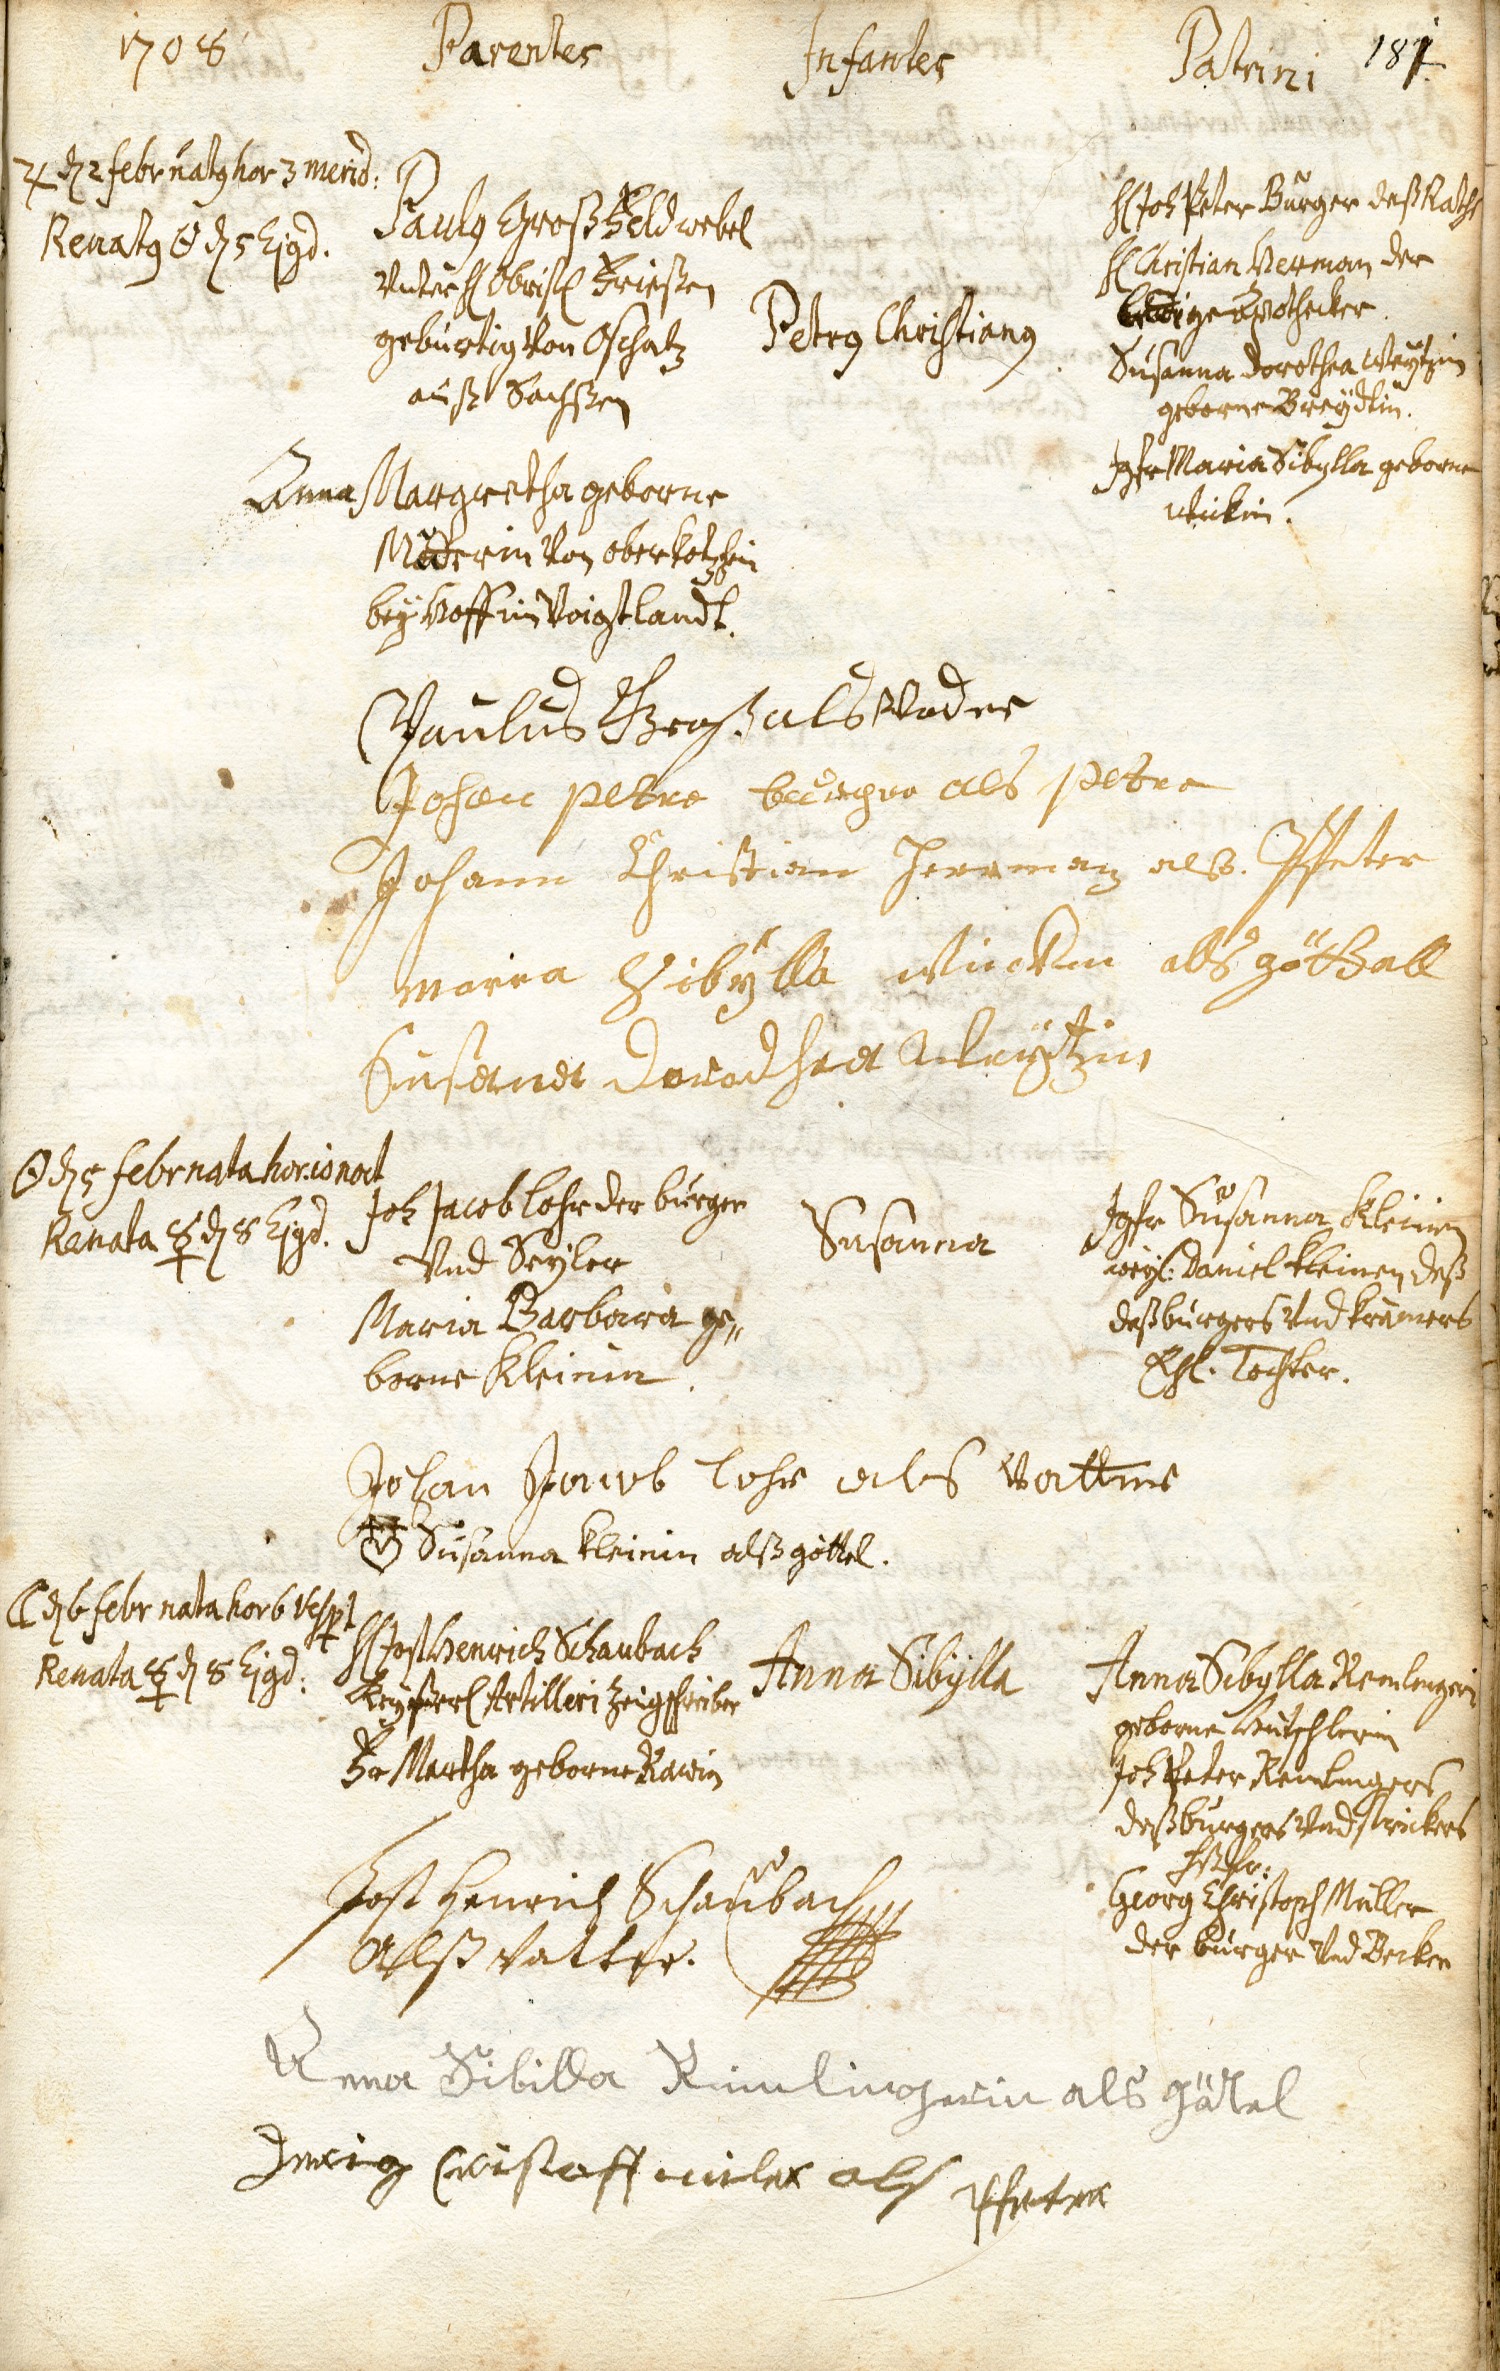 1708 Parentes Infantes Patrini 181
♃ d 2 febr natꝰ hor 3 merid:
Renatꝰ ☉ d 5 Ejgd.
Paulꝰ Groß Feldwebel
Unter H Obrist Frießen
gebürtig Von Oschatz
auß Sachßen
Anna Margretha geborne
Möderin Von oberkotzhein
bey Hoff im Voigtlandt.
Petrꝰ Christianꝰ
H Joh Peter Bürger deß Raths
H Christian Herman der
ledige Apothecker.
Susanna Dorothea Weytzin
geborne Breydtin.
Jgfr Maria Sibylla geborne
Wickin.
Paulus Groß als Vader
Johan peter burger als peter
Johann Christian Herrman als. Pfeter
maria Sibÿlla Wickin als göthall
Susana dorodhea Weÿtzin
☉ d 5 febr nata hor. 10 noct
Renata ☿ d 8 Ejgd.
Joh Jacob Lohr der bürger
Und Seyler
Maria Barbara ge„
borne Kleinin.
Susanna
Jgfr Susanna Kleinin
weyl: Daniel Kleinen deß
deß bürgers Und Krämers
Ehl. Tochter.
Johan Jacob Lohr als Vatter
Susanna Kleinin alß göttel.
☾ d 6 febr nata hor 6 vesp
Renata ☿ d 8 Ejgd:
H Jost Henrich Schaubach
Keyßerl Artilleri Zeigschreiber
Fr Martha geborne Rawin
Anna Sibÿlla
Anna Sibylla Remlingerin
geborne
Joh Peter Remlingers
deß bürgers Und strickers
Haßfr:
Georg Christoph Müller
der bürger Und Becker
Jost Henrich Schaubach
Alß Vatter.
Anna Sibilla Rimlingerin als gättel
Jerig Cristoff miler als Pfetter